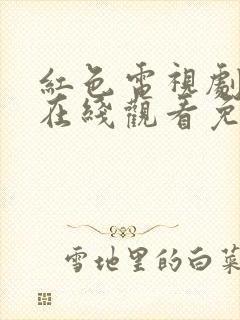 紅色電視劇
在綫觀看免
雪地里的白菜